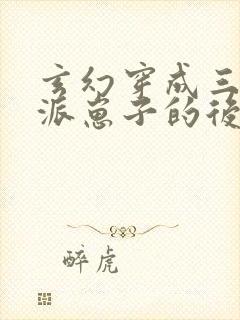 玄幻穿成三
派崽子的後
醉虎